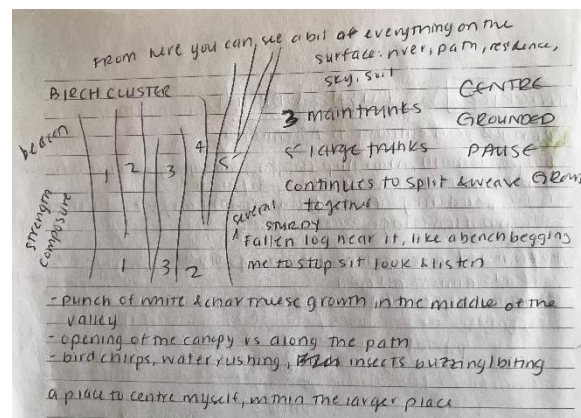 From here you can see a bit of everything on the
surface: river, path, residence,
sky, soil
BIRCH CLUSTER
CENTRE
3 main trunks
GROUNDED
5 large trunks
PAUSE
continues to split & weave GROW
together
beacon
strength
composure
1 2 3 4 5
1 3 2
several
sturdy
Fallen log near it, like a bench begging
me to stop sit look & listen
- punch of white & chartruese growth in the middle of the
valley
- opening of the canopy vs along the path
- bird chirps, water rushing, insects buzzing/biting
a place to centre myself, within the larger place